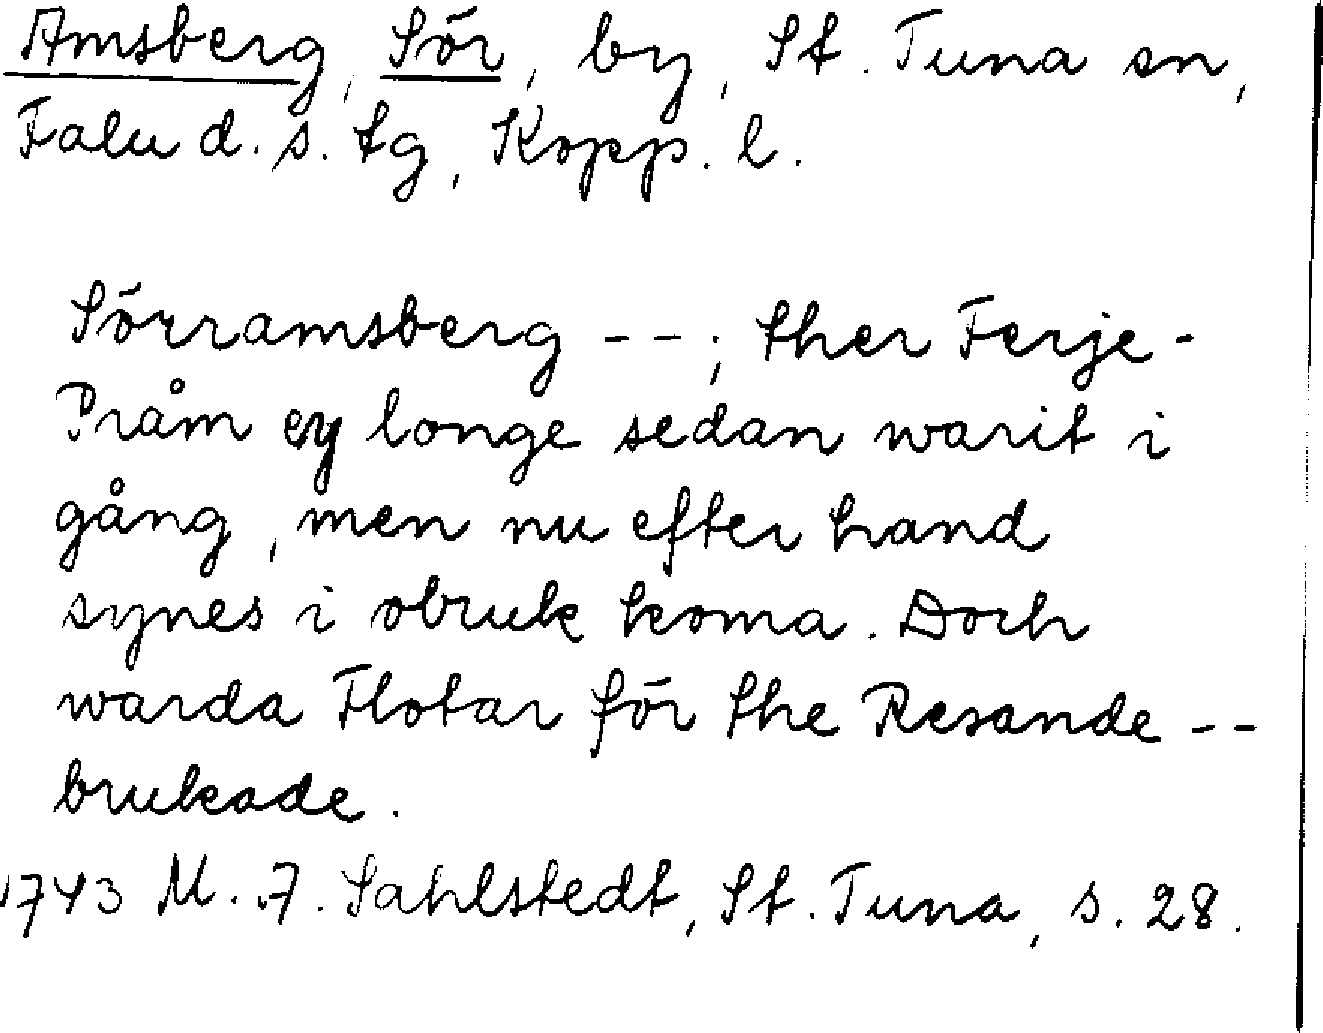 Amsberg, Sör, by, St. Tuna sn,
Falu d.s. tg, Kopp. l.
Sörramsberg --; ther Ferje-
Pråm ey longe sedan warit i
gång, men nu efter hand
synes i obruk koma. Doch
warda Flotar för the Resande --
brukade.
1743 M. A. Sahlstedt, St. Tuna, s. 28.